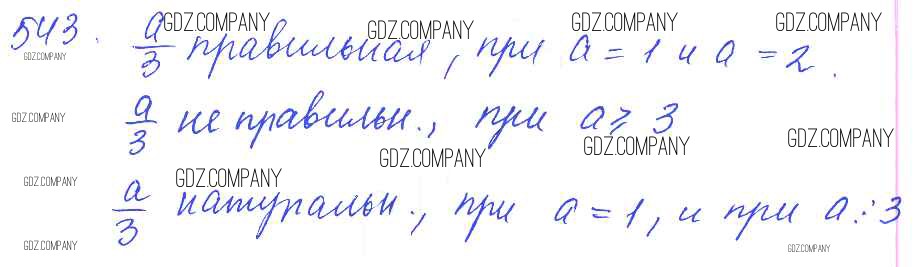 543. a/3 правильная, при a = 1 и a = 2.
a/3 не правильн., при a ⩾ 3
a/3 натуральн., при a = 1, и при a ⋮ 3
GDZ.COMPANY GDZ.COMPANY GDZ.COMPANY GDZ.COMPANY
GDZ.COMPANY
GDZ.COMPANY GDZ.COMPANY GDZ.COMPANY GDZ.COMPANY
GDZ.COMPANY GDZ.COMPANY
GDZ.COMPANY GDZ.COMPANY